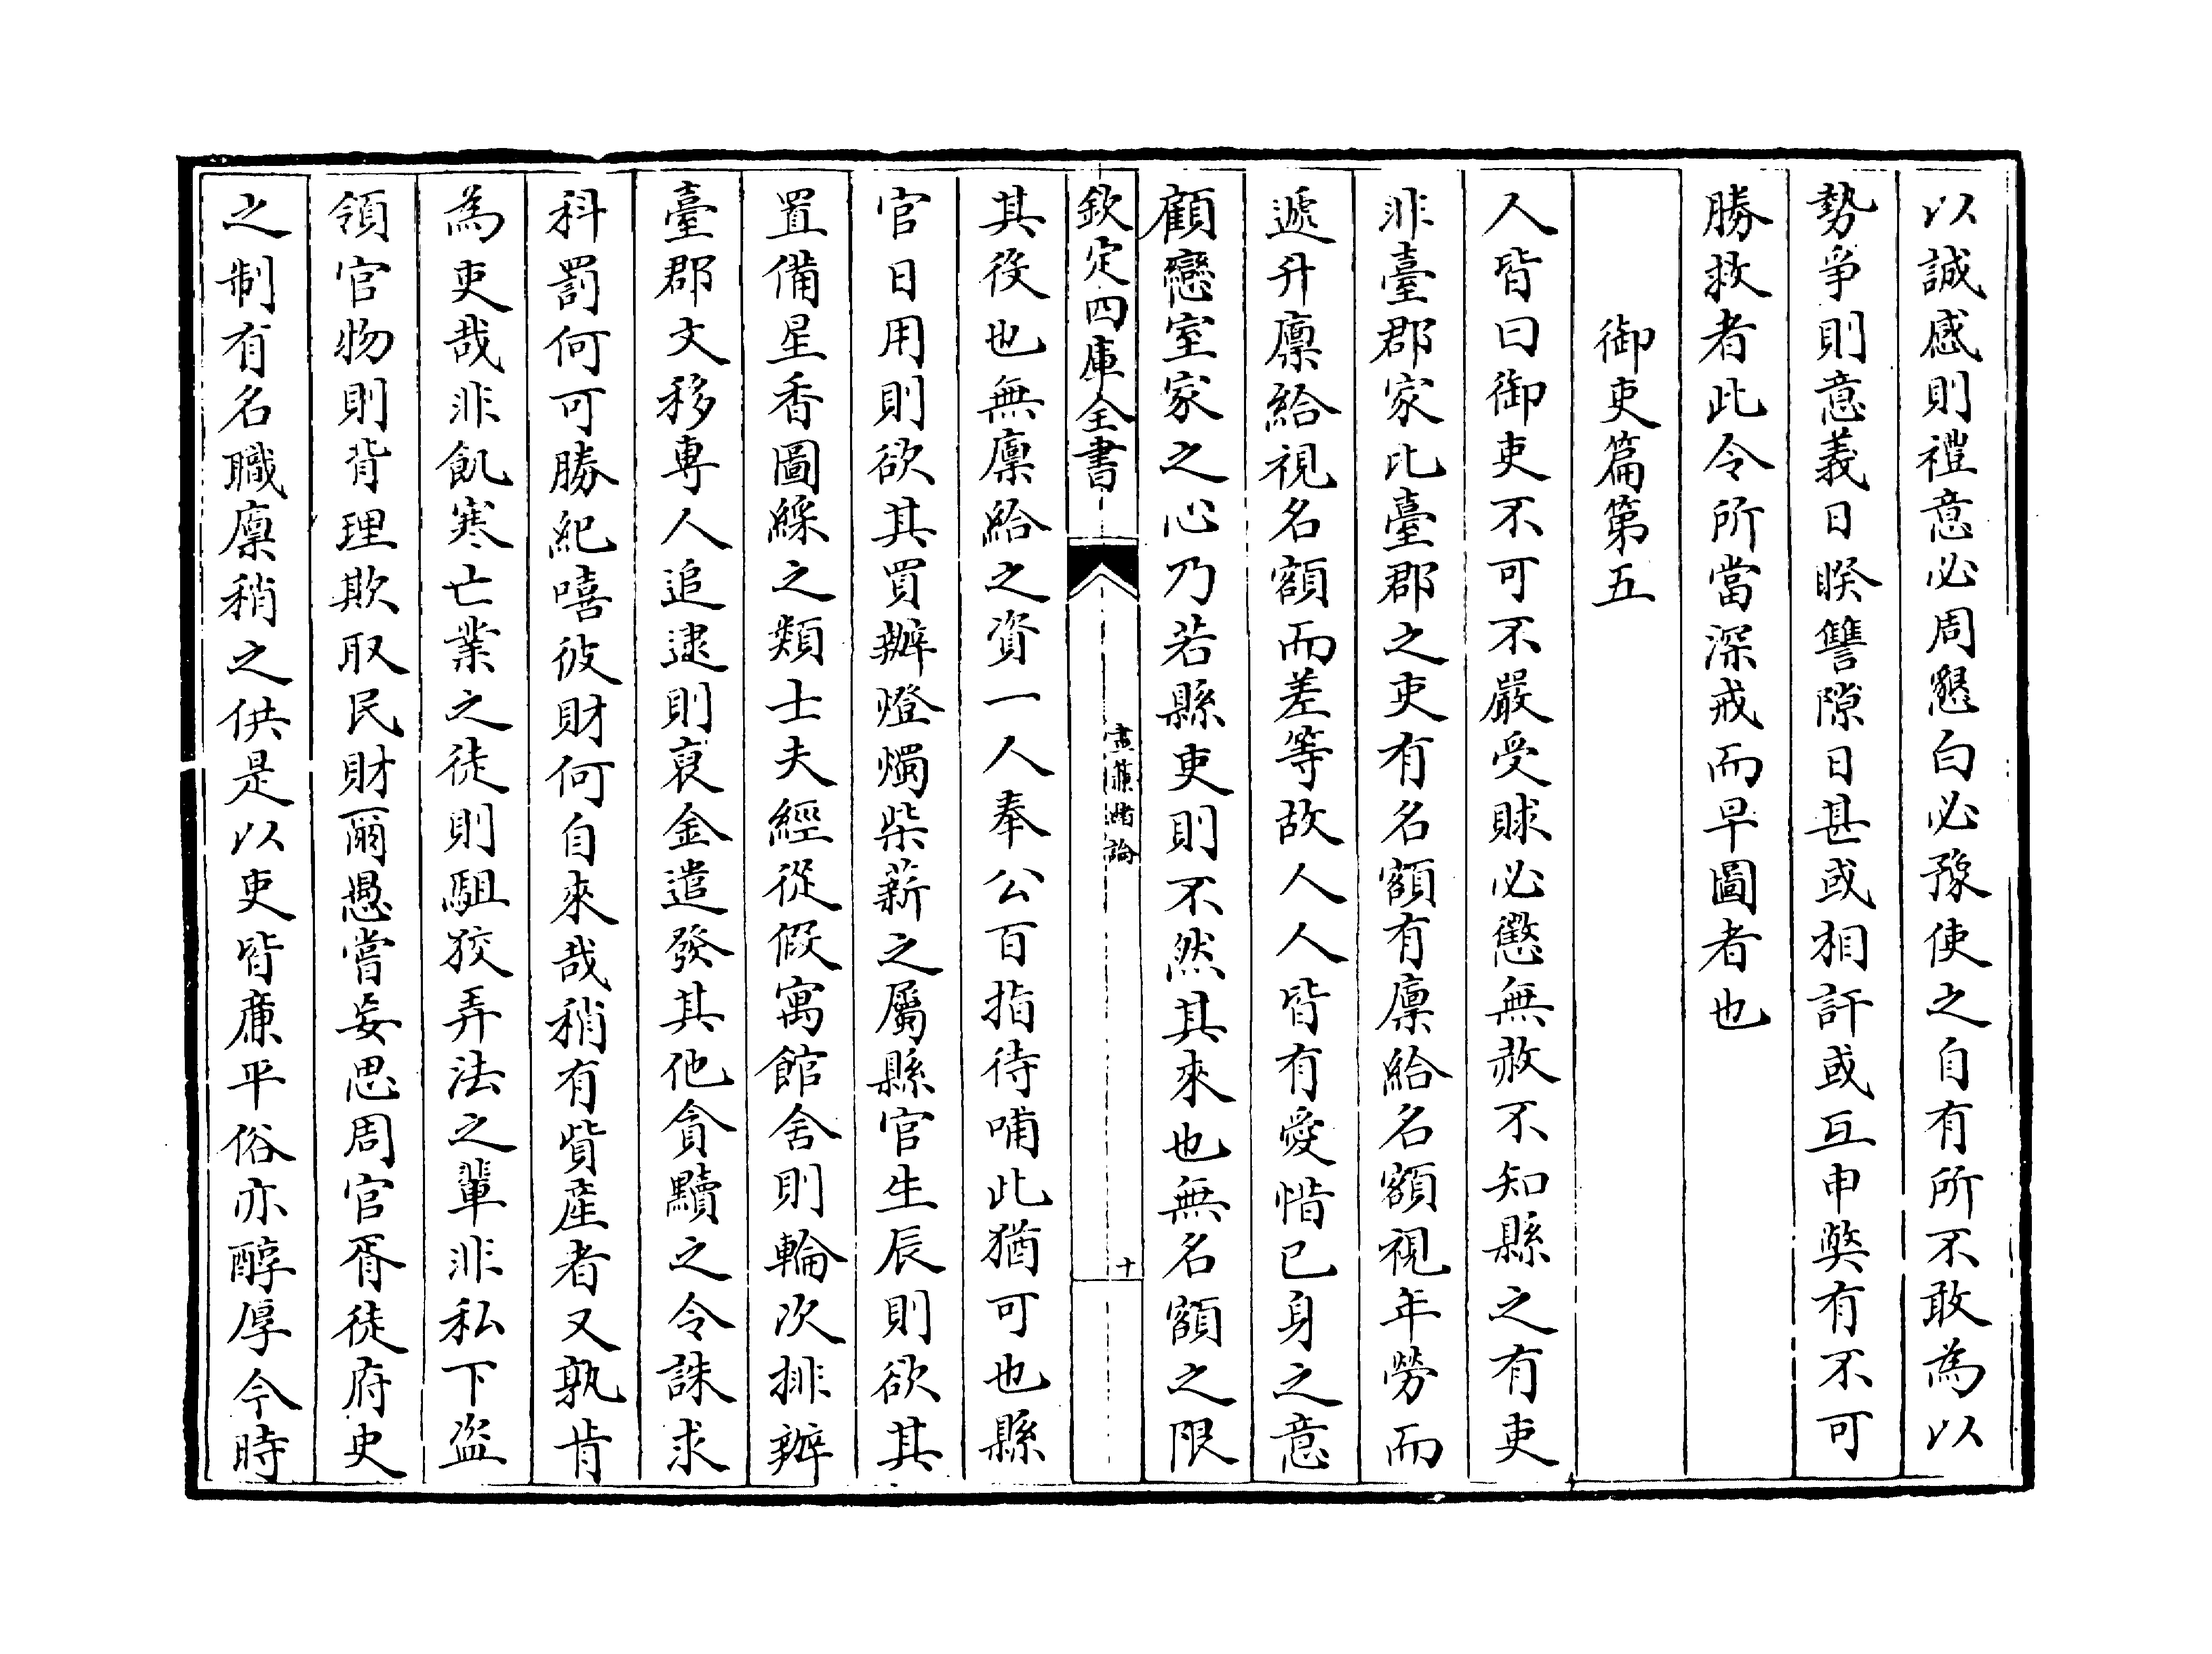 以誠感則禮意必周懇白必豫使之自有所不敢為以
勢爭則意義日睽讐隙日甚或相訐或互申獘有不可
勝救者此令所當深戒而早圖者也
御吏篇第五
人皆曰御吏不可不嚴受賕必懲無赦不知縣之有吏
非臺郡家比臺郡之吏有名額有廩給名額視年勞而
遞升廩給視名額而差等故人人皆有愛惜已身之意
顧戀室家之心乃若縣吏則不然其來也無名額之限
欽定四庫全書
晝簾緒論
十
其役也無廩給之資一人奉公百指待哺此猶可也縣
官日用則欲其買辦燈燭柴薪之屬縣官生辰則欲其
置備星香圖綵之類士夫經從假寓館舍則輪次排辦
臺郡文移專人追逮則裒金遣發其他貪黷之令誅求
科罰何可勝紀嘻彼財何自來哉稍有貲産者又孰肯
為吏哉非飢寒亡業之徒則駔狡弄法之輩非私下盜
領官物則背理欺取民財爾愚嘗妄思周官胥徒府史
之制有名職廩稍之供是以吏皆亷平俗亦醇厚今時